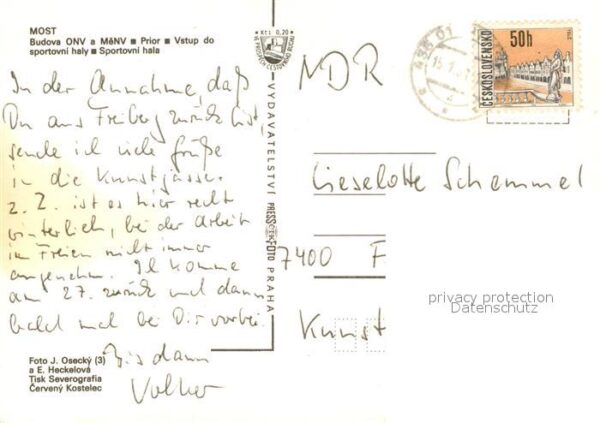 MOST
Budova ONV a MěNV ■ Prior ■ Vstup do
sportovní haly ■ Sportovní hala
In der Annahme, daß
Du aus Freiberg zurück bist,
sende ich viele Grüße
in die Kunstgasse.
z. Z. ist es hier recht
winterlich, bei der Arbeit
im Freien nicht immer
angenehm. Ich komme
am 27. zurück und dann
bald mal bei Dir vorbei.
Bis dann
Volker
Foto J. Osecký (3)
a E. Heckelová
Tisk Severografia
Červený Kostelec
Kčs 0,20
VYDAVATELSTVÍ PRESSFOTO PRAHA
ČESKOSLOVENSKO
50h
NDR
Lieselotte Schemmel
7400 F
Kunst
privacy protection
Datenschutz